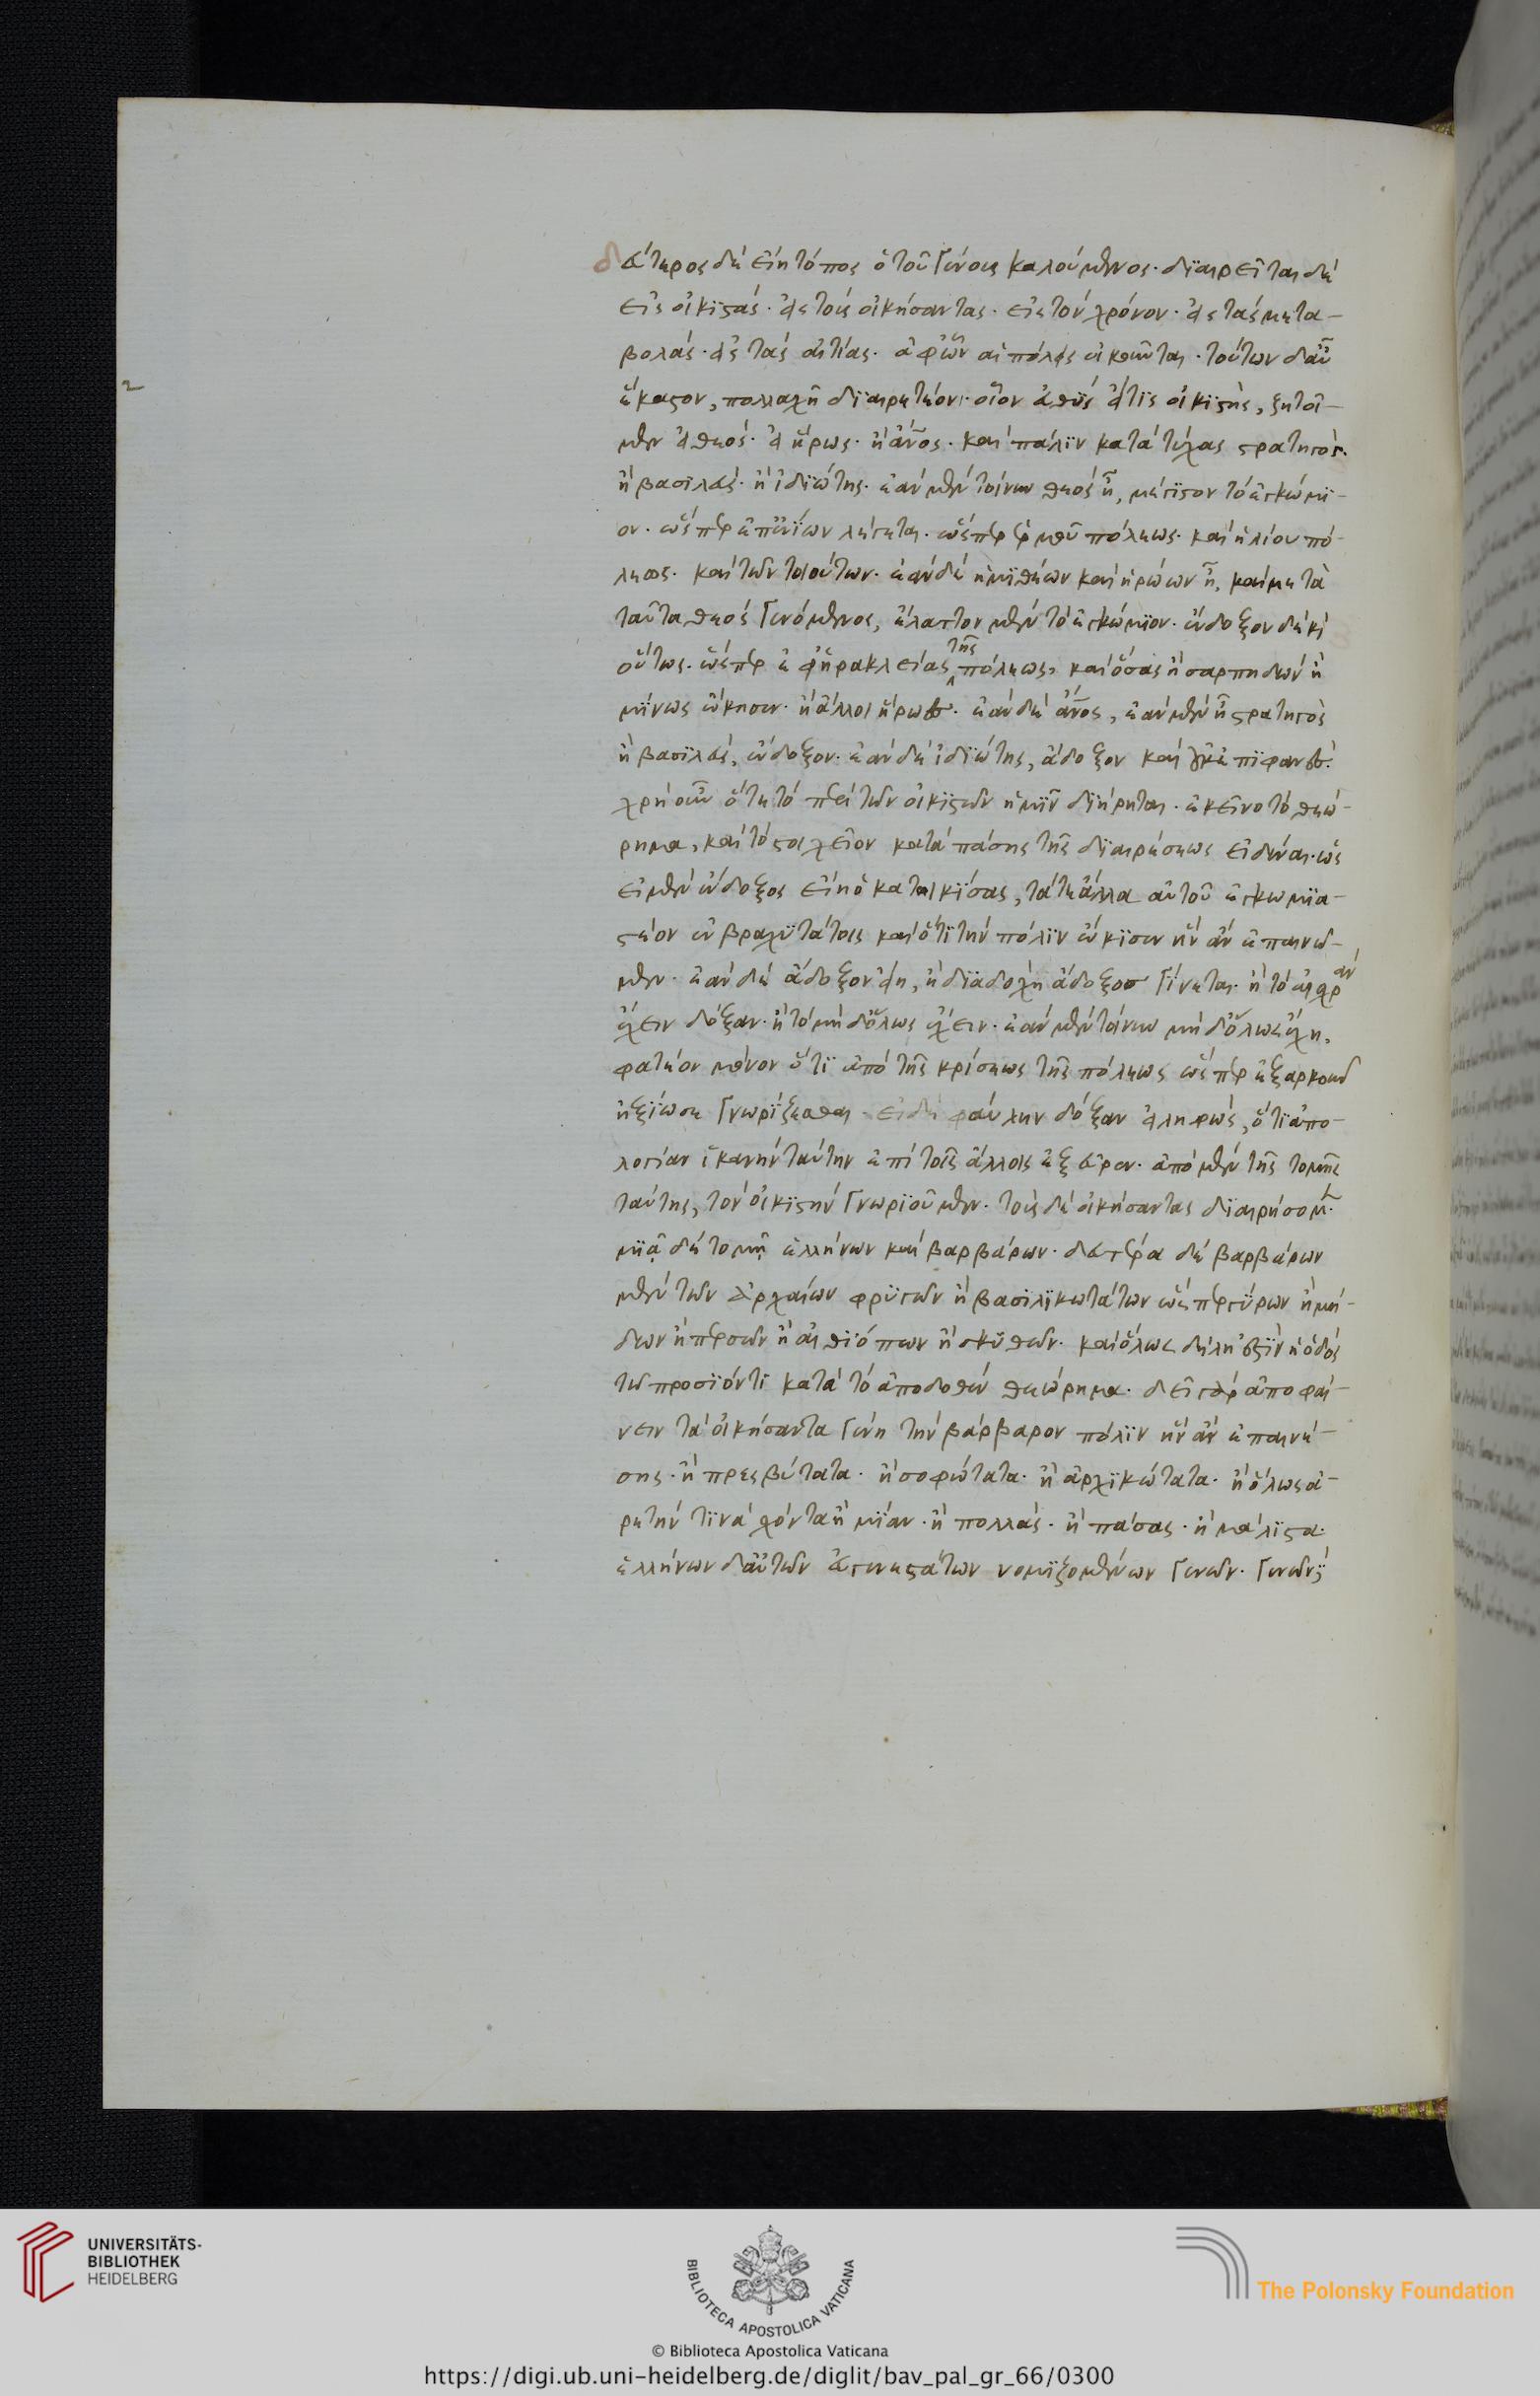 δεύτερος δὲ εἴη τόπος ὁ τοῦ γένους καλούμενος· διαιρεῖται δὲ
εἰς οἰκιστάς· εἰς τοὺς οἰκήσαντας· εἰς τὸν χρόνον· εἰς τὰς μετα-
βολάς· εἰς τὰς αἰτίας· ἀφ' ὧν αἱ πόλεις οἰκοῦνται· τούτων δ' αὖ
2
ἕκαστον, πολλαχῆ διαιρετέον· οἷον εὐθὺς εἴ τις οἰκιστὴς, ζητοῖ-
μεν εἰ θεός· εἰ ἥρως· ἢ ἄνος· καὶ πάλιν κατὰ τύχας στρατηγός·
ἢ βασιλεύς· ἢ ἰδιώτης· ἐὰν μὲν τοίνυν θεὸς ἦ, μέγιστον τὸ ἐγκώμι-
ον· ὥσπερ ἐπ' ἐνίων λέγεται· ὥσπερ ἑρμοῦ πόλεως· καὶ ἡλίου πό-
λεως· καὶ τῶν τοιούτων· ἐὰν δὲ ἡμιθέων καὶ ἡρώων ἦ, καὶ μετὰ
ταῦτα θεὸς γενόμενος, ἔλαττον μὲν τὸ ἐγκώμιον· ἔνδοξον δὲ κ
οὕτως· ὥσπερ ἐφ' ἡρακλείας τῆς πόλεως, καὶ ὅσας ἢ σαρπηδὼν ἢ
μίνως ᾤκησεν· ἢ ἄλλοι ἥρωες· ἐὰν δὲ ἄνος, ἐὰν μὲν ἦ στρατηγὸς
ἢ βασιλεύς, ἔνδοξον· ἐὰν δὲ ἰδιώτης, ἄδοξον καὶ οὐκ ἐπιφανές·
χρὴ οὖν ὅτε τὸ περὶ τῶν οἰκιστῶν ἡμῖν διήρηται· ἐκεῖνο τὸ θεώ-
ρημα, καὶ τὸ στοιχεῖον κατὰ πάσης τῆς διαιρέσεως εἰδέναι· ὡς
εἰ μὲν ἔνδοξος εἴη ὁ κατοικίσας, τά τε ἄλλα αὐτοῦ ἐγκωμια-
στέον ἐν βραχυτάτοις καὶ ὅτι τὴν πόλιν ᾤκισεν ἣν ἂν ἐπαινῶ-
μεν· ἐὰν δὲ ἄδοξον εἴη, ἡ διαδοχὴ ἄδοξος γίνεται· ἢ τὸ αἰσχρὰν
ἔχειν δόξαν· ἢ τὸ μὴ δ' ὅλως ἔχειν· ἐὰν μὲν τοίνυν μὴ δ' ὅλως ἔχη,
φατέον μόνον ὅτι ἀπὸ τῆς κρίσεως τῆς πόλεως ὥσπερ ἐξαρκούσης
ἠξίωσε γνωρίζεσθαι· εἰ δὲ φαύλην δόξαν εἰληφώς, ὅτι ἀπο-
λογίαν ἱκανὴν ταύτην ἐπὶ τοῖς ἄλλοις ἐξεῦρεν· ἀπὸ μὲν τῆς τομῆς
ταύτης, τὸν οἰκιστὴν γνωριοῦμεν· τοὺς δὲ οἰκήσαντας διαιρήσομεν·
μιᾷ δὲ τομῇ ἑλλήνων καὶ βαρβάρων· δευτέρα δὲ βαρβάρων
μὲν τῶν ἀρχαίων φρυγῶν ἢ βασιλικωτάτων ὥσπερ σύρων ἢ μή-
δων ἢ περσῶν ἢ αἰθιόπων ἢ σκυθῶν· καὶ ὅλως δήλη ἐστὶν ἡ ὁδὸς
τῶ προσιόντι κατὰ τὸ ἀποδοθὲν θεώρημα· δεῖ γὰρ ἀποφαί-
νειν τὰ οἰκήσαντα γένη τὴν βάρβαρον πόλιν ἣν ἂν ἐπαινέ-
σης· ἢ πρεσβύτατα· ἢ σοφώτατα· ἢ ἀρχικώτατα· ἢ ὅλως ἀ-
ρετήν τινα ἔχοντα ἢ μίαν· ἢ πολλάς· ἢ πάσας· ἢ μάλιστα·
ἑλλήνων δ' αὖ τῶν εὐγενεστάτων νομιζομένων γενῶν· γενῶν
UNIVERSITÄTS-
BIBLIOTHEK
HEIDELBERG
BIBLIOTECA APOSTOLICA VATICANA
The Polonsky Foundation
© Biblioteca Apostolica Vaticana
https://digi.ub.uni-heidelberg.de/diglit/bav_pal_gr_66/0300